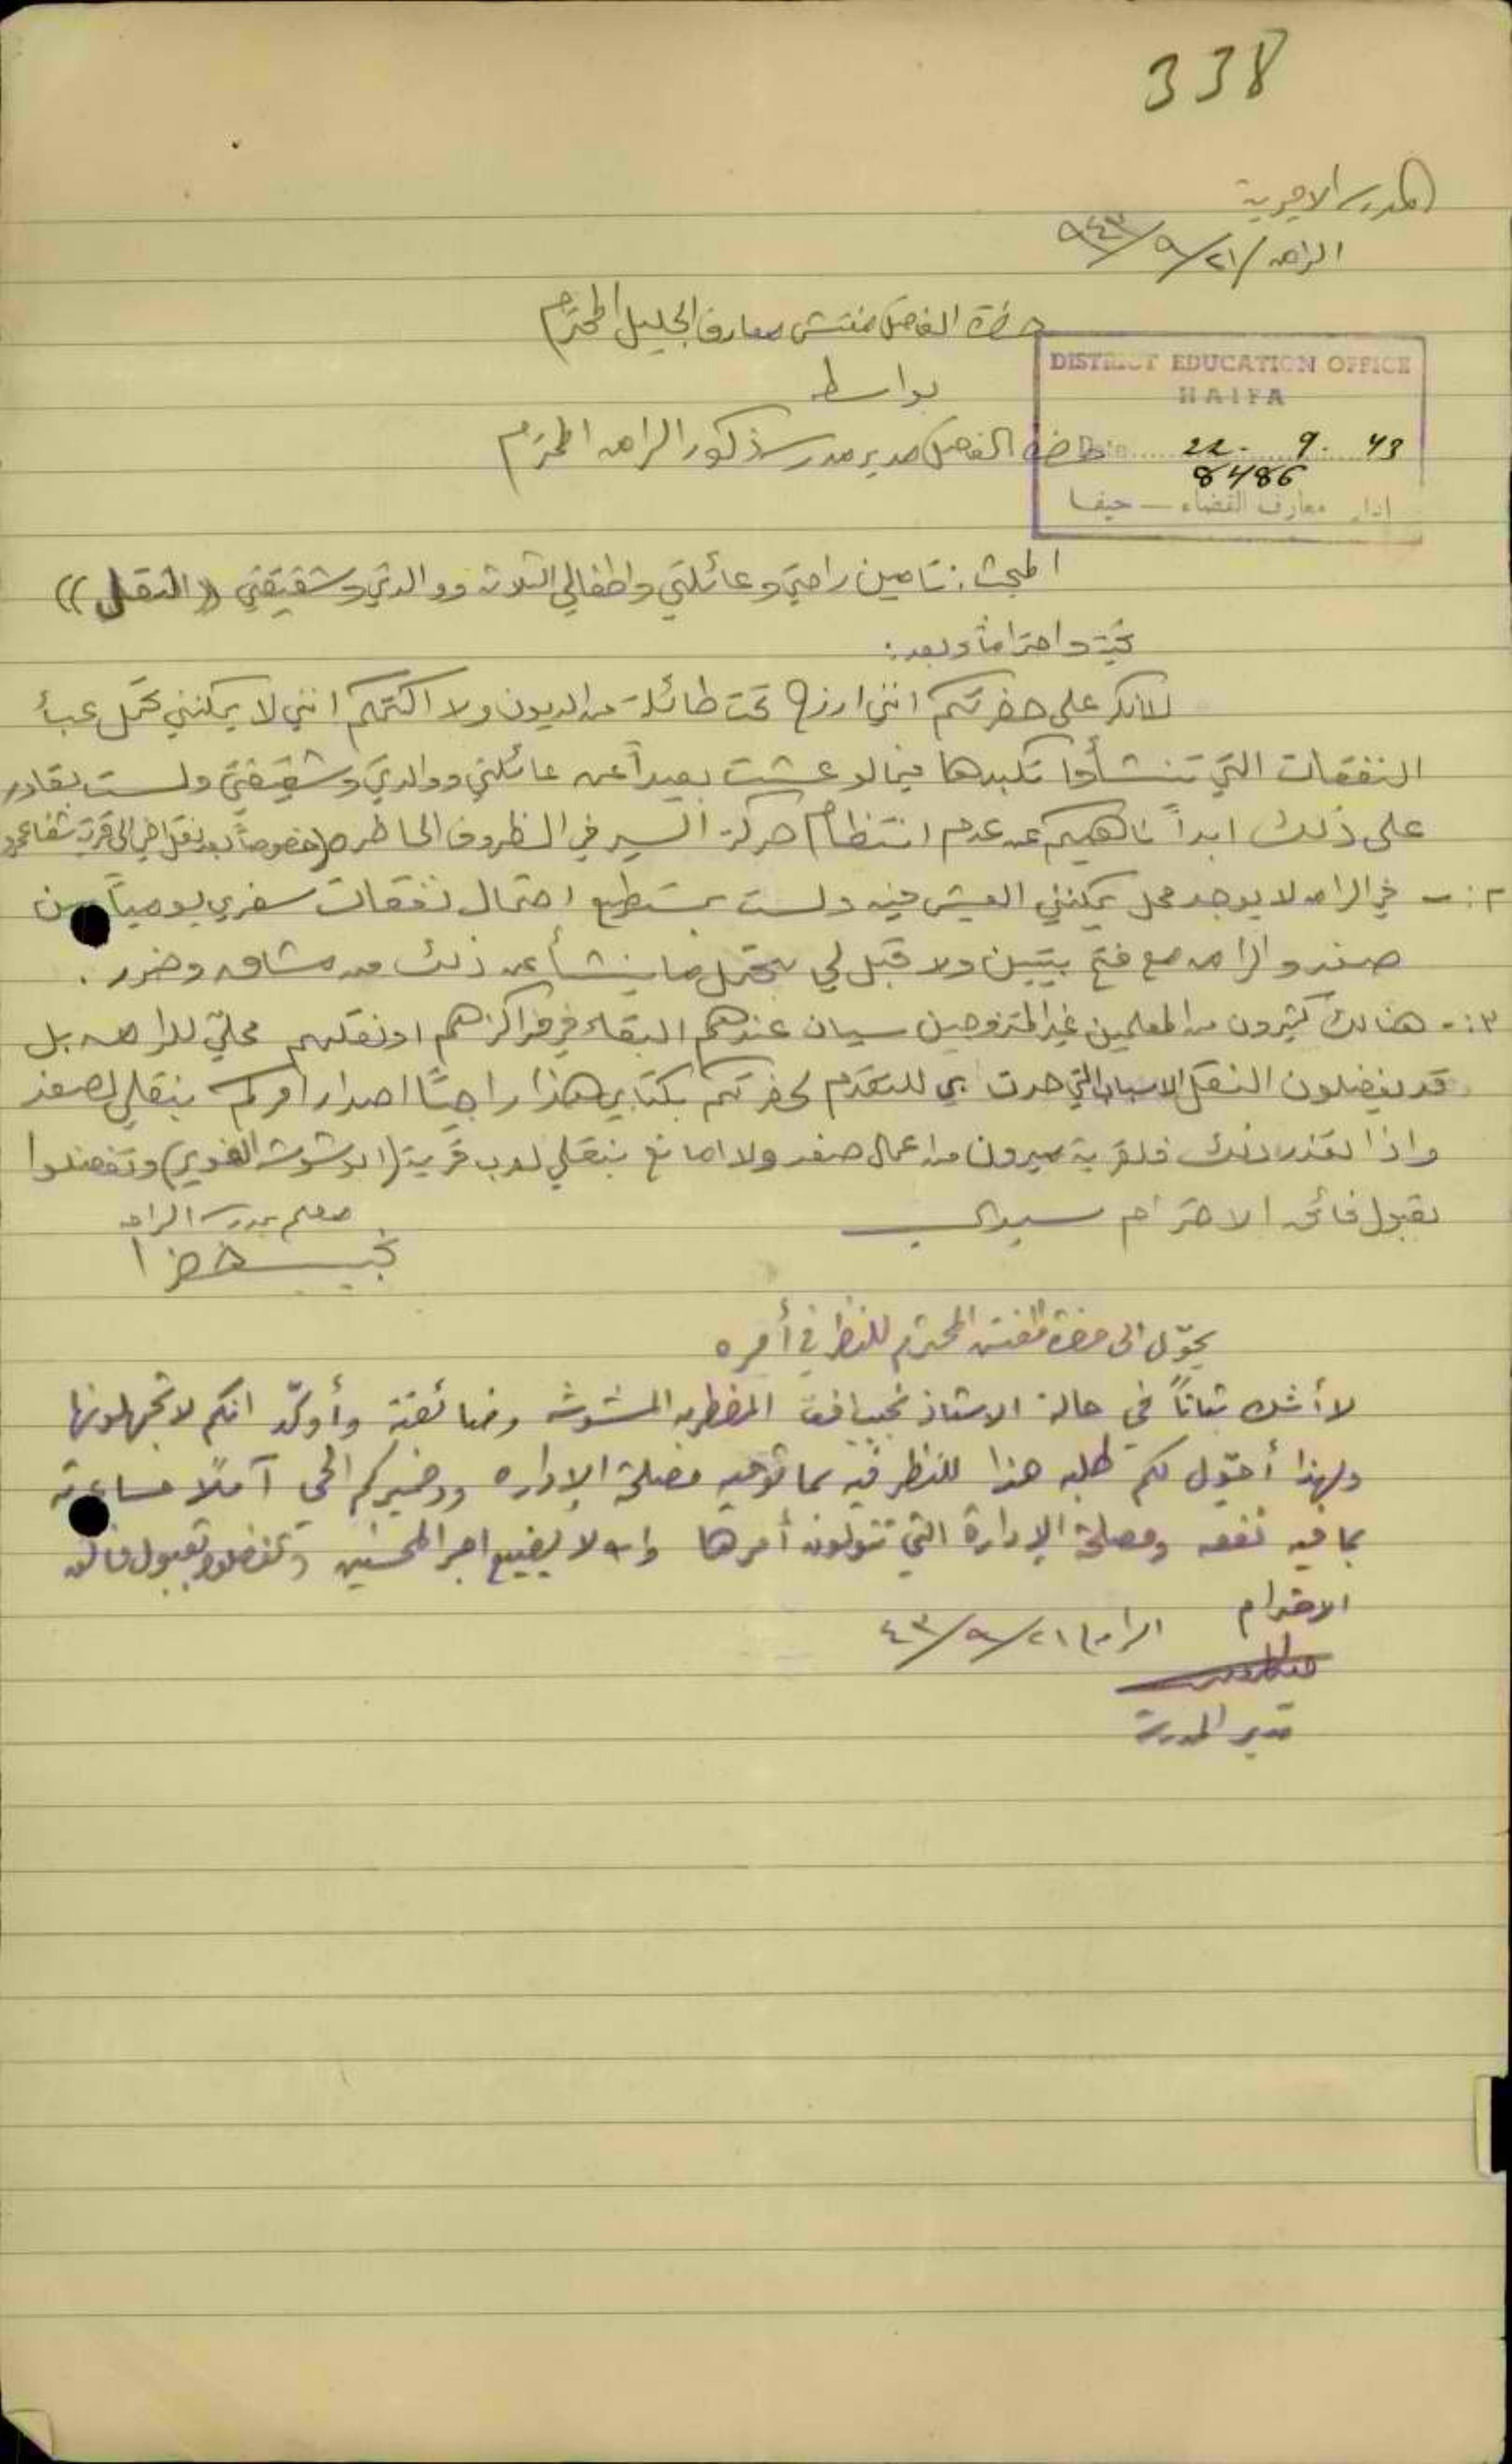 338
المدرسة الاميرية
الرامه / ٢١/ ٩/ ٩٤٣
حضرة الفاضل مفتش معارف الجليل المحترم
بواسطة
DISTRICT EDUCATION OFFICE
HAIFA
Date 22. 9. 43
8486
ادارة معارف القضاء — حيفا
حضرة الفاضل مدير مدرسة ذكور الرامه المحترم
المبحث: تامين راحتي وعائلتي واطفالي الثلاثة ووالدتي وشقيقتي ((النقل))
تحية واحتراماً وبعد:
على حضرتكم انني ارزح تحت طائلة من الديون ولا اكتمكم انني لا يمكنني تحمل عبأ
النفقات التي تنشأ تكبدها فيما لو عشت بعيداً عن عائلتي ووالدتي وشقيقتي ولست بقادر
على ذلك ابداً ناهيكم عن عدم انتظام حركة السير في الظروف الحاضره (خصوصاً بعد نقل اخي الى قرية شفاعمرو
٢:- في الرامه لا يوجد محل يمكنني العيش فيه ولست بمستطيع احتمال نفقات سفري يومياً بين
صفد والرامه مع فتح بيتين ولا قبل لي بتحمل ما ينشأ عن ذلك من مشاق وضرر.
٣:- هنالك كثيرون من المعلمين غير المتزوجين سيان عندهم البقاء في مراكزهم او نقلهم محلي للرامه بل
قد يفضلون النقل الاسباب التي حدت بي للتقدم لحضرتكم بكتابي هذا راجياً اصدار امركم بنقلي لصفد
واذا تعذر ذلك فلقرية ميرون من اعمال صفد ولا امانع بنقلي لعرب قرية (ابوشوشه الغوير) وتفضلوا
بقبول فائق الاحترام سيدي
معلم بمدرسة الرامه
نجيب خضرا
يحوّل الى حضرة المفتش المحترم للنظر في أمره
لا أشك بتاتاً في حالة الاستاذ نجيب المضطربه المشوشه وضائقته وأؤكّد انكم لا تجهلونها
ولهذا أحوّل لكم طلبه هذا للنظر فيه بما توحيه مصلحة الإداره وضميركم الحي آملاً مساعدته
بما فيه نفعه ومصلحة الإدارة التي تتولون أمرها والله لا يضيع اجر المحسنين وتفضلوا بقبول فائق
الاحترام الرامه ٢١/ ٩/ ٤٣
مدير المدرسة